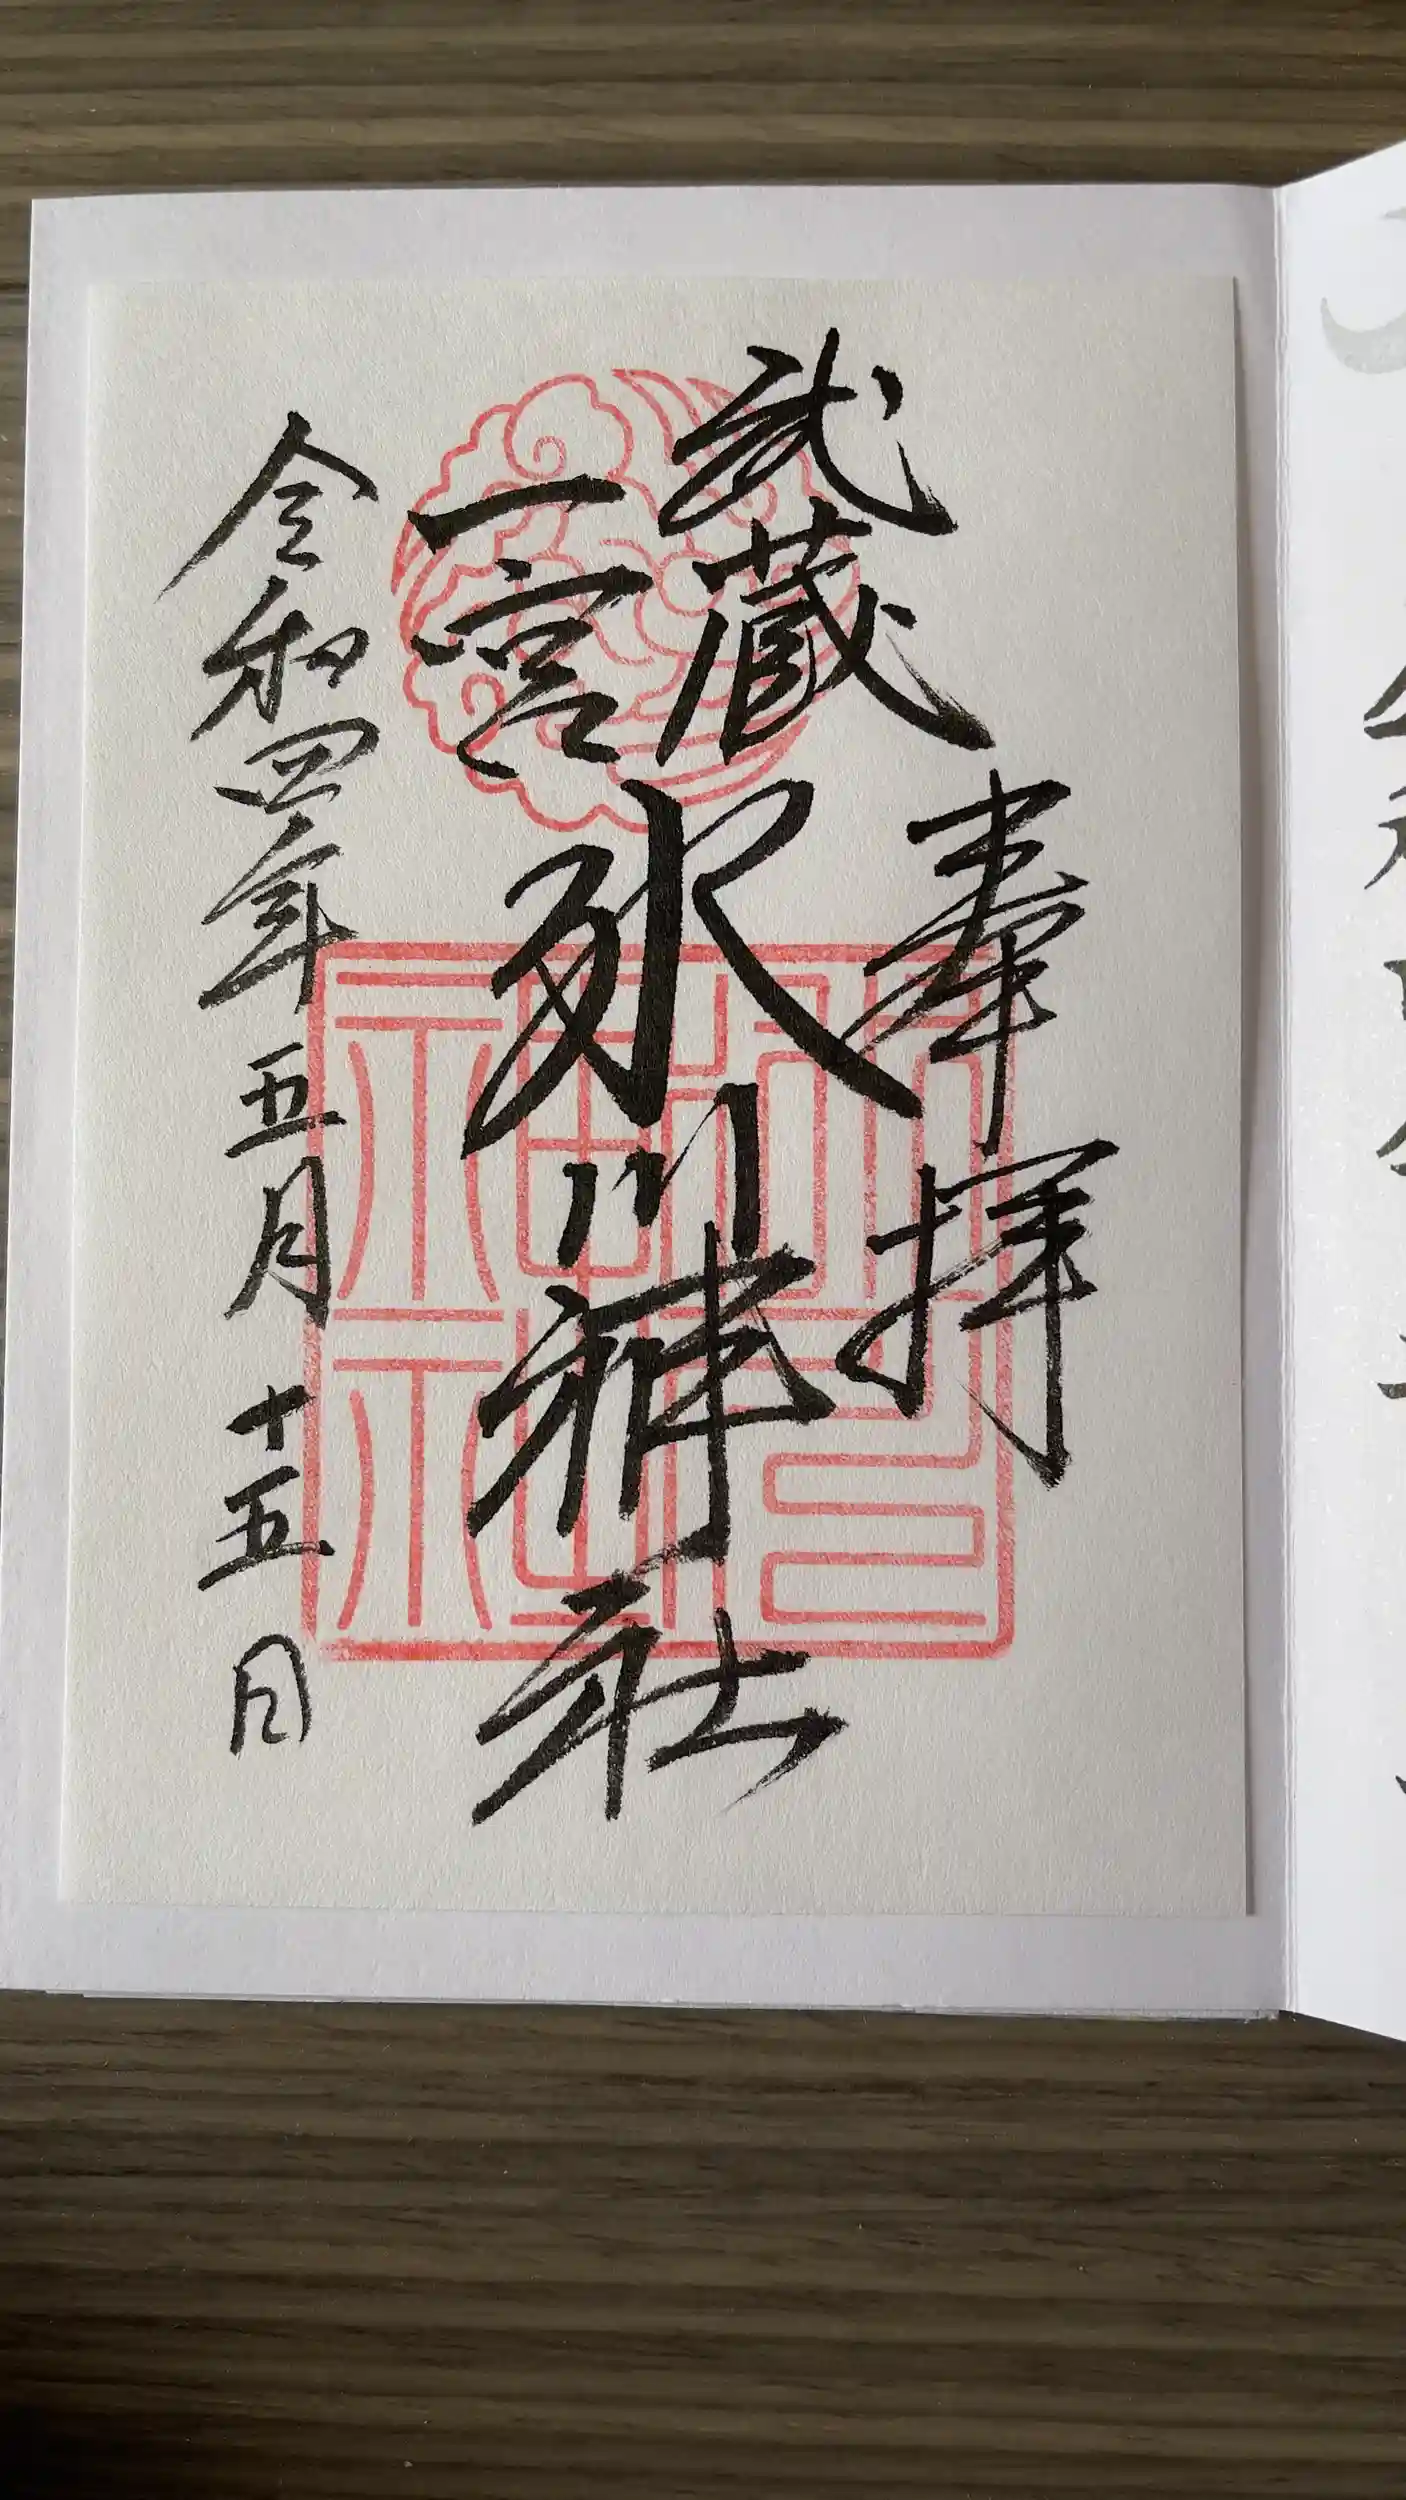 奉拝
武蔵
一宮
氷川神社
令和四年五月十五日
氷川神社